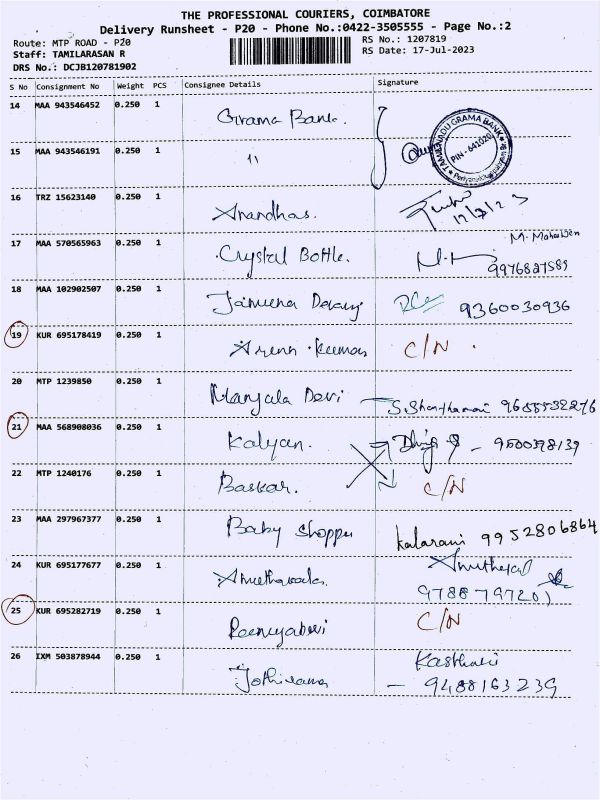 THE PROFESSIONAL COURIERS, COIMBATORE
Delivery Runsheet - P20 - Phone No.:0422-3505555 - Page No.:2
Route: MTP ROAD - P20
RS No.: 1207819
Staff: TAMILARASAN R
RS Date: 17-Jul-2023
DRS No.: DCJB120781902
S No Consignment No Weight PCS Consignee Details Signature
14 MAA 943546452 0.250 1 Grama Bank.
15 MAA 943546191 0.250 1 "
TAMILNADU GRAMA BANK
PIN-641020
16 TRZ 15623140 0.250 1 Anandhas.
17 MAA 570565963 0.250 1 Crystal Bottle. 9976827589
18 MAA 102902507 0.250 1 Jamuna 9360030936
19 KUR 695178419 0.250 1 Arun Kumar C/N.
20 MTP 1239850 0.250 1 Manjala Devi 9655532276
21 MAA 568908036 0.250 1 Kalyan. - 9500398139
22 MTP 1240176 0.250 1 Baskar. C/N
23 MAA 297967377 0.250 1 Baby Shoppu kalarani 9952806864
24 KUR 695177677 0.250 1 9788797201
25 KUR 695282719 0.250 1 C/N
26 IXM 503878944 0.250 1 - 9488163239